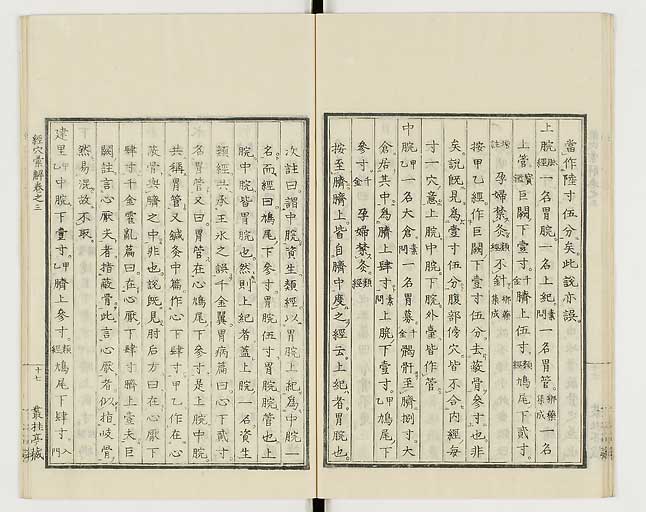 當作陸寸伍分矣此說亦誤
上脘經脉一名胃脘一名上紀素問一名胃管聊藥集成一名
上管寶鑑巨闕下壹寸千金臍上伍寸類經鳩尾下貳寸
孕婦禁灸類經不針聊藥集成
按甲乙經作巨闕下壹寸伍分去蔽骨參寸也非
矣說既見爲壹寸伍分腹部傍穴皆不合內經每
寸一穴意上脘中脘下脘外臺皆作管
中脘甲乙一名大倉素問一名胃募千金𩩲骬至臍捌寸大
倉居其中爲臍上肆寸素問上脘下壹寸甲乙鳩尾下
參寸千金孕婦禁灸類經
按至臍臍上皆自臍中度之經云上紀者胃脘也
次註曰謂中脘資生類經以胃脘上紀爲中脘一
名而經曰鳩尾下參寸胃脘伍寸胃脘脘管也上
脘中脘皆胃脘也然則上紀者蓋上脘一名資生
類經共承王氷之誤千金翼胃病篇曰心下貳寸
名胃管又曰胃管在心鳩尾下參寸是上脘中脘
共稱胃管又鍼灸中篇作心下肆寸甲乙作在心
蔽骨與臍之中非也說既見肘后方曰在心厭下
肆寸千金霍亂篇曰在心厭下肆寸臍上壹夫巨
闕註言心厭夫者指蔽骨此言心厭者似指岐骨
然易混故不取
建里甲乙中脘下壹寸甲乙臍上參寸類經鳩尾下肆寸入門
經穴彙解卷之三
十七
叢桂亭藏